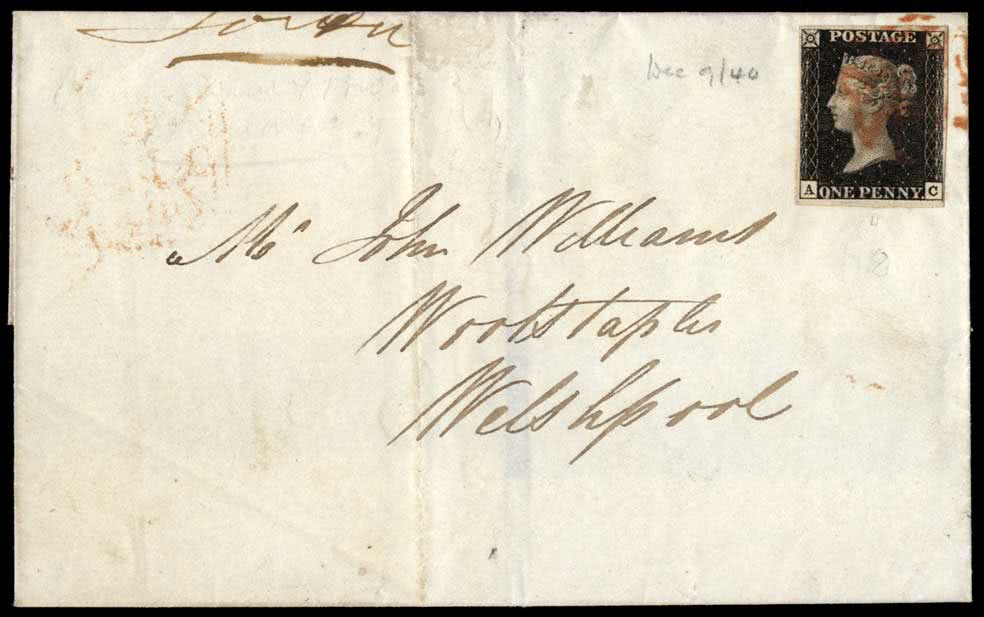 Dec 9/40
POSTAGE
A ONE PENNY. C
Mr John Williams
Woolstapler
Welshpool
8